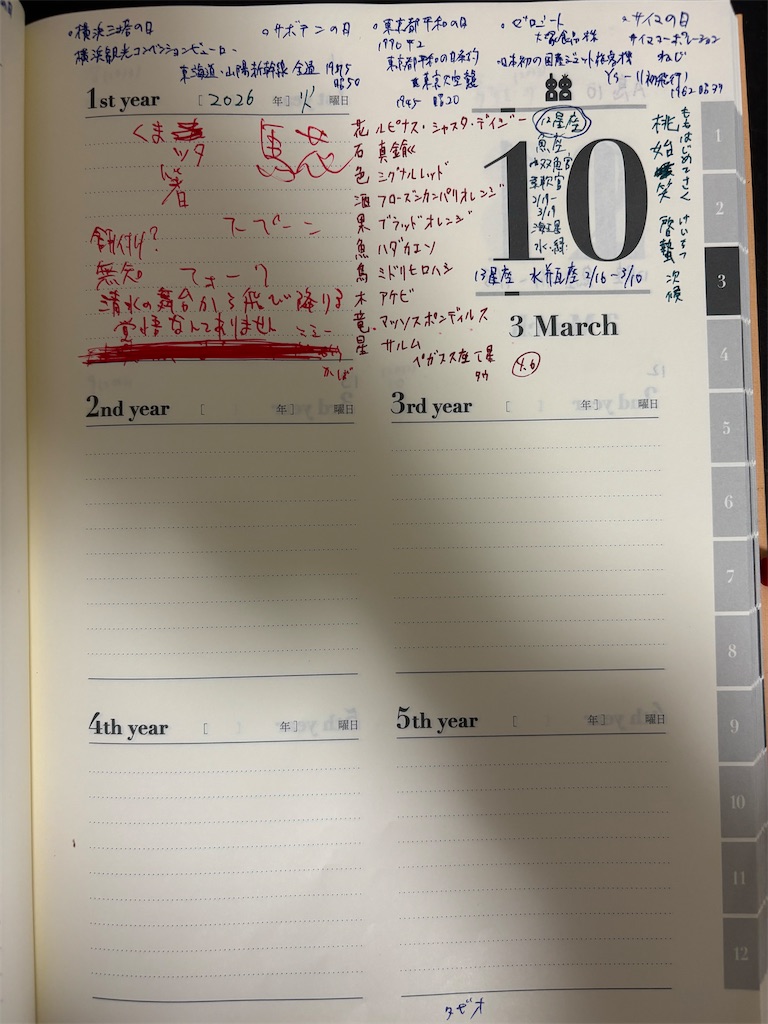 ・横浜三塔の日
横浜観光コンベンションビューロー
・サボテンの日
東海道・山陽新幹線 全通 1975
昭50
・東京都平和の日
1990 平2
東京都平和の日条例
東京大空襲
1945 昭20
・ゼロ
大塚食品 株
・日本初の国産ジェット 機
・サイズの日
ねじ
1962 昭37
1st year [2026 年] 火 曜日
10
3 March
12星座
魚座
双魚宮
柔軟宮
2/19〜
3/19
海王星
水・緑
桃始笑
ももはじめてさく
啓蟄 次候
けいちつ
13星座 水瓶座 2/16〜3/10
くま
ツタ
箸
馬
餌付け?
無知
清水の舞台から飛び降りる
覚悟なんてありません
かば
花 ルピナス・シャスタ・デイジー
石 真鍮
色 シグナルレッド
酒 フローズンカンパリオレンジ
果 ブラッドオレンジ
魚 ハダカエソ
鳥 ミドリヒロハシ
木 アケビ
竜 マッソスポンディルス
星 サルム
ペガスス座 τ星
タウ
4.6
2nd year [ 年] 曜日
3rd year [ 年] 曜日
4th year [ 年] 曜日
5th year [ 年] 曜日
1
2
3
4
5
6
7
8
9
10
11
12